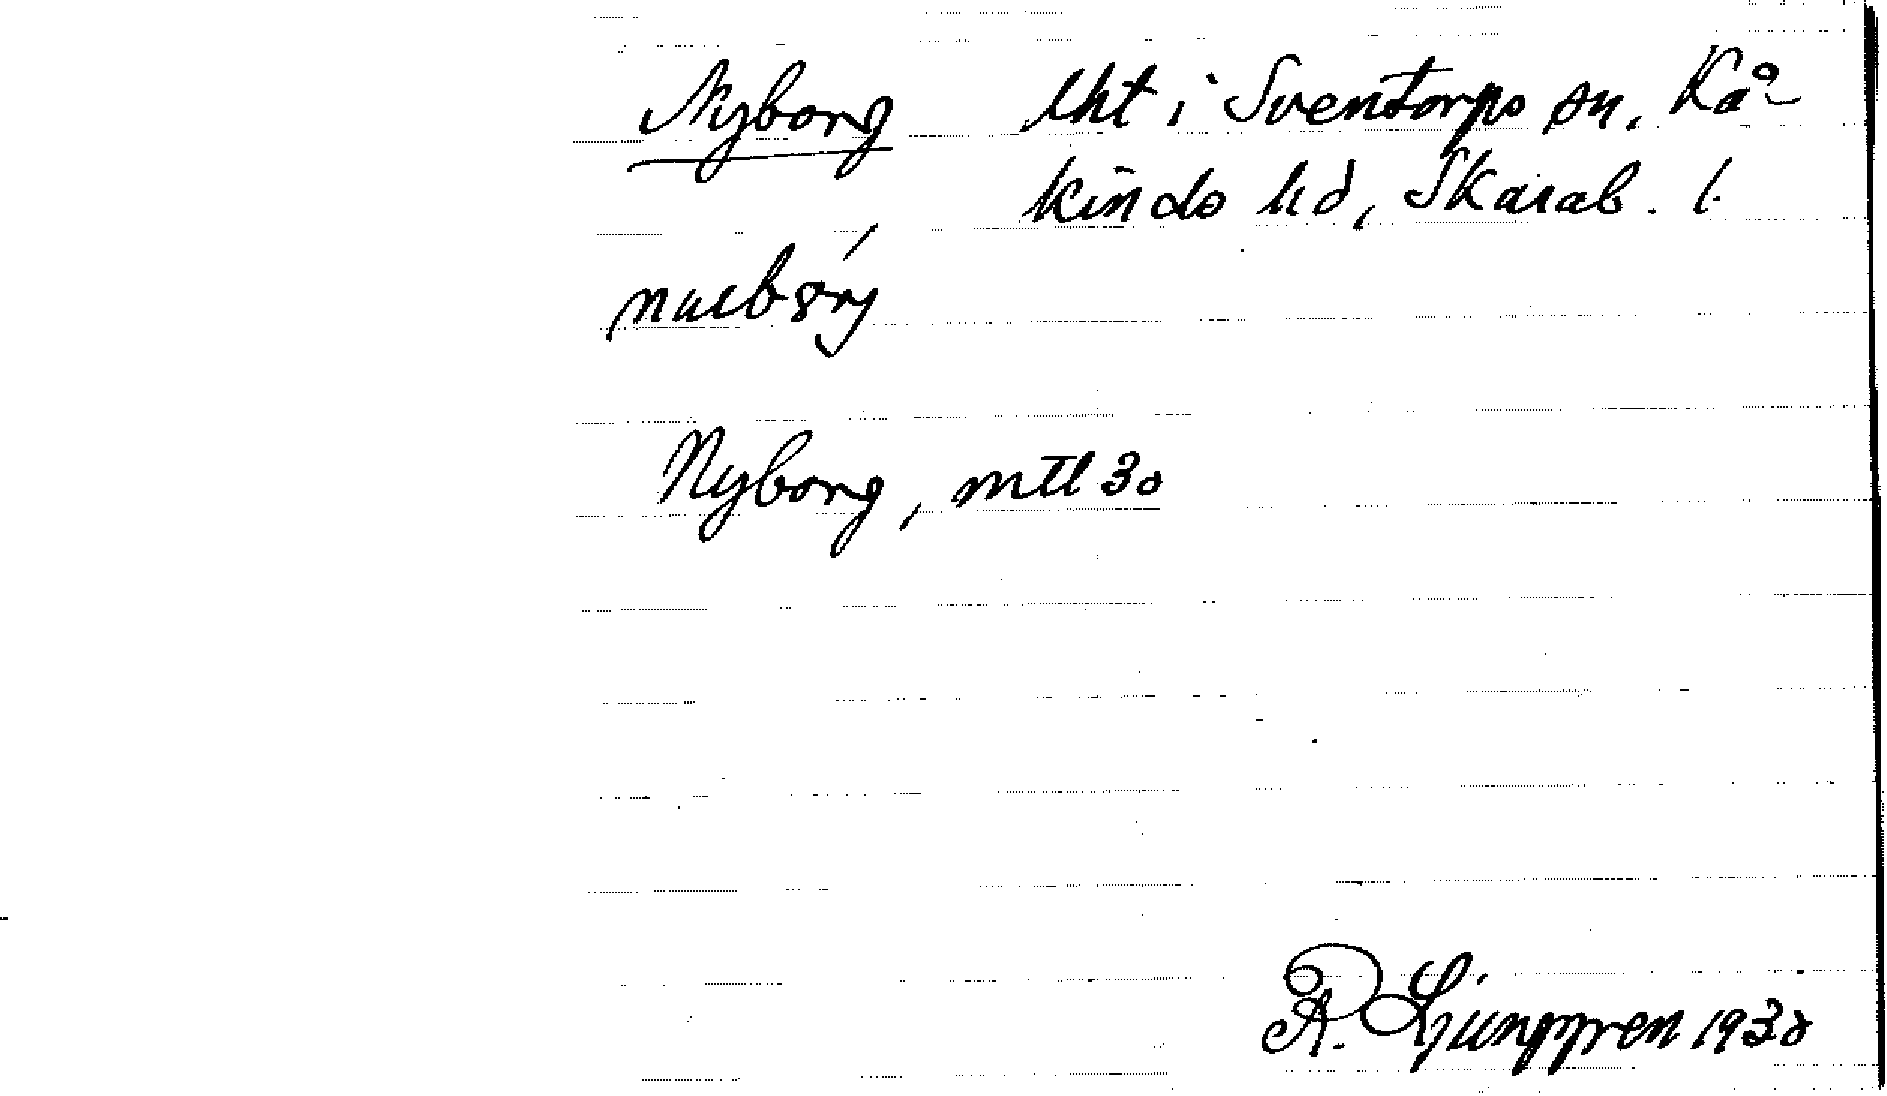 Nyborg lht i Sventorps sn, Kå-
kinds hd, Skarab. l.
Nyborg, mtl 30
R. Ljunggren 1930